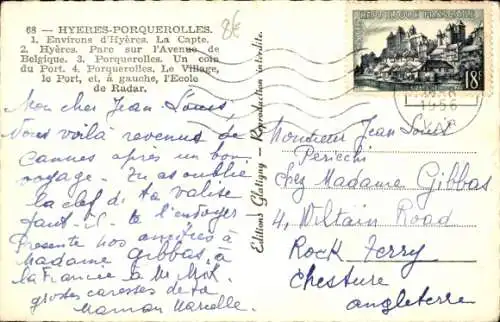 68 — HYERES-PORQUEROLLES.
1. Environs d'Hyères. La Capte.
2. Hyères. Parc sur l'Avenue de
Belgique. 3. Porquerolles. Un coin
du Port. 4. Porquerolles. Le Village,
le Port, et, à gauche, l'Ecole
de Radar.
8€
Mon cher Jean Louis,
Vous voilà revenus de
Cannes après un bon
voyage. Tu as oublié
la clef de ta valise
faut-il te l'envoyer
Presente nos amitiés à
Madame Gibbas, à
la Francie à
grosses caresses de ta
Maman Marcelle.
Editions Glatigny — Reproduction interdite.
REPUBLIQUE FRANÇAISE
18F
1956
Monsieur Jean Louis
Periechi
chez Madame Gibbas
4, Wiltain Road
Rock Ferry
Chesture
Angleterre